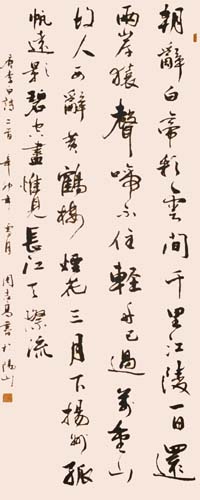 朝辭白帝彩雲間千里江陵一日還
兩岸猿聲啼不住輕舟已過萬重山
故人西辭黃鶴樓煙花三月下揚州孤
帆遠影碧空盡惟見長江天際流
唐李白詩二首辛卯年